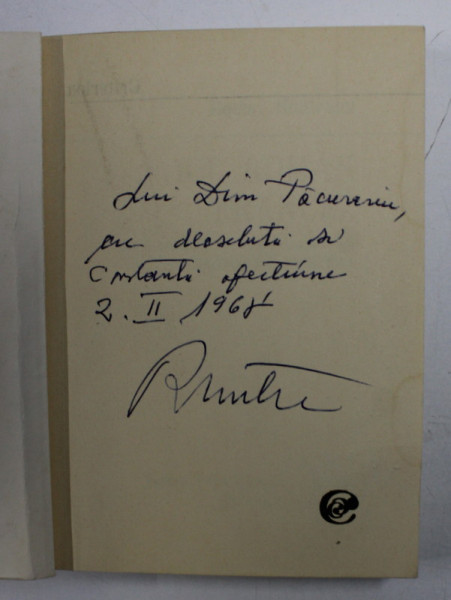 Lui Dim Păcurariu,
cu deosebită și
constantă afecțiune
2. II 1968